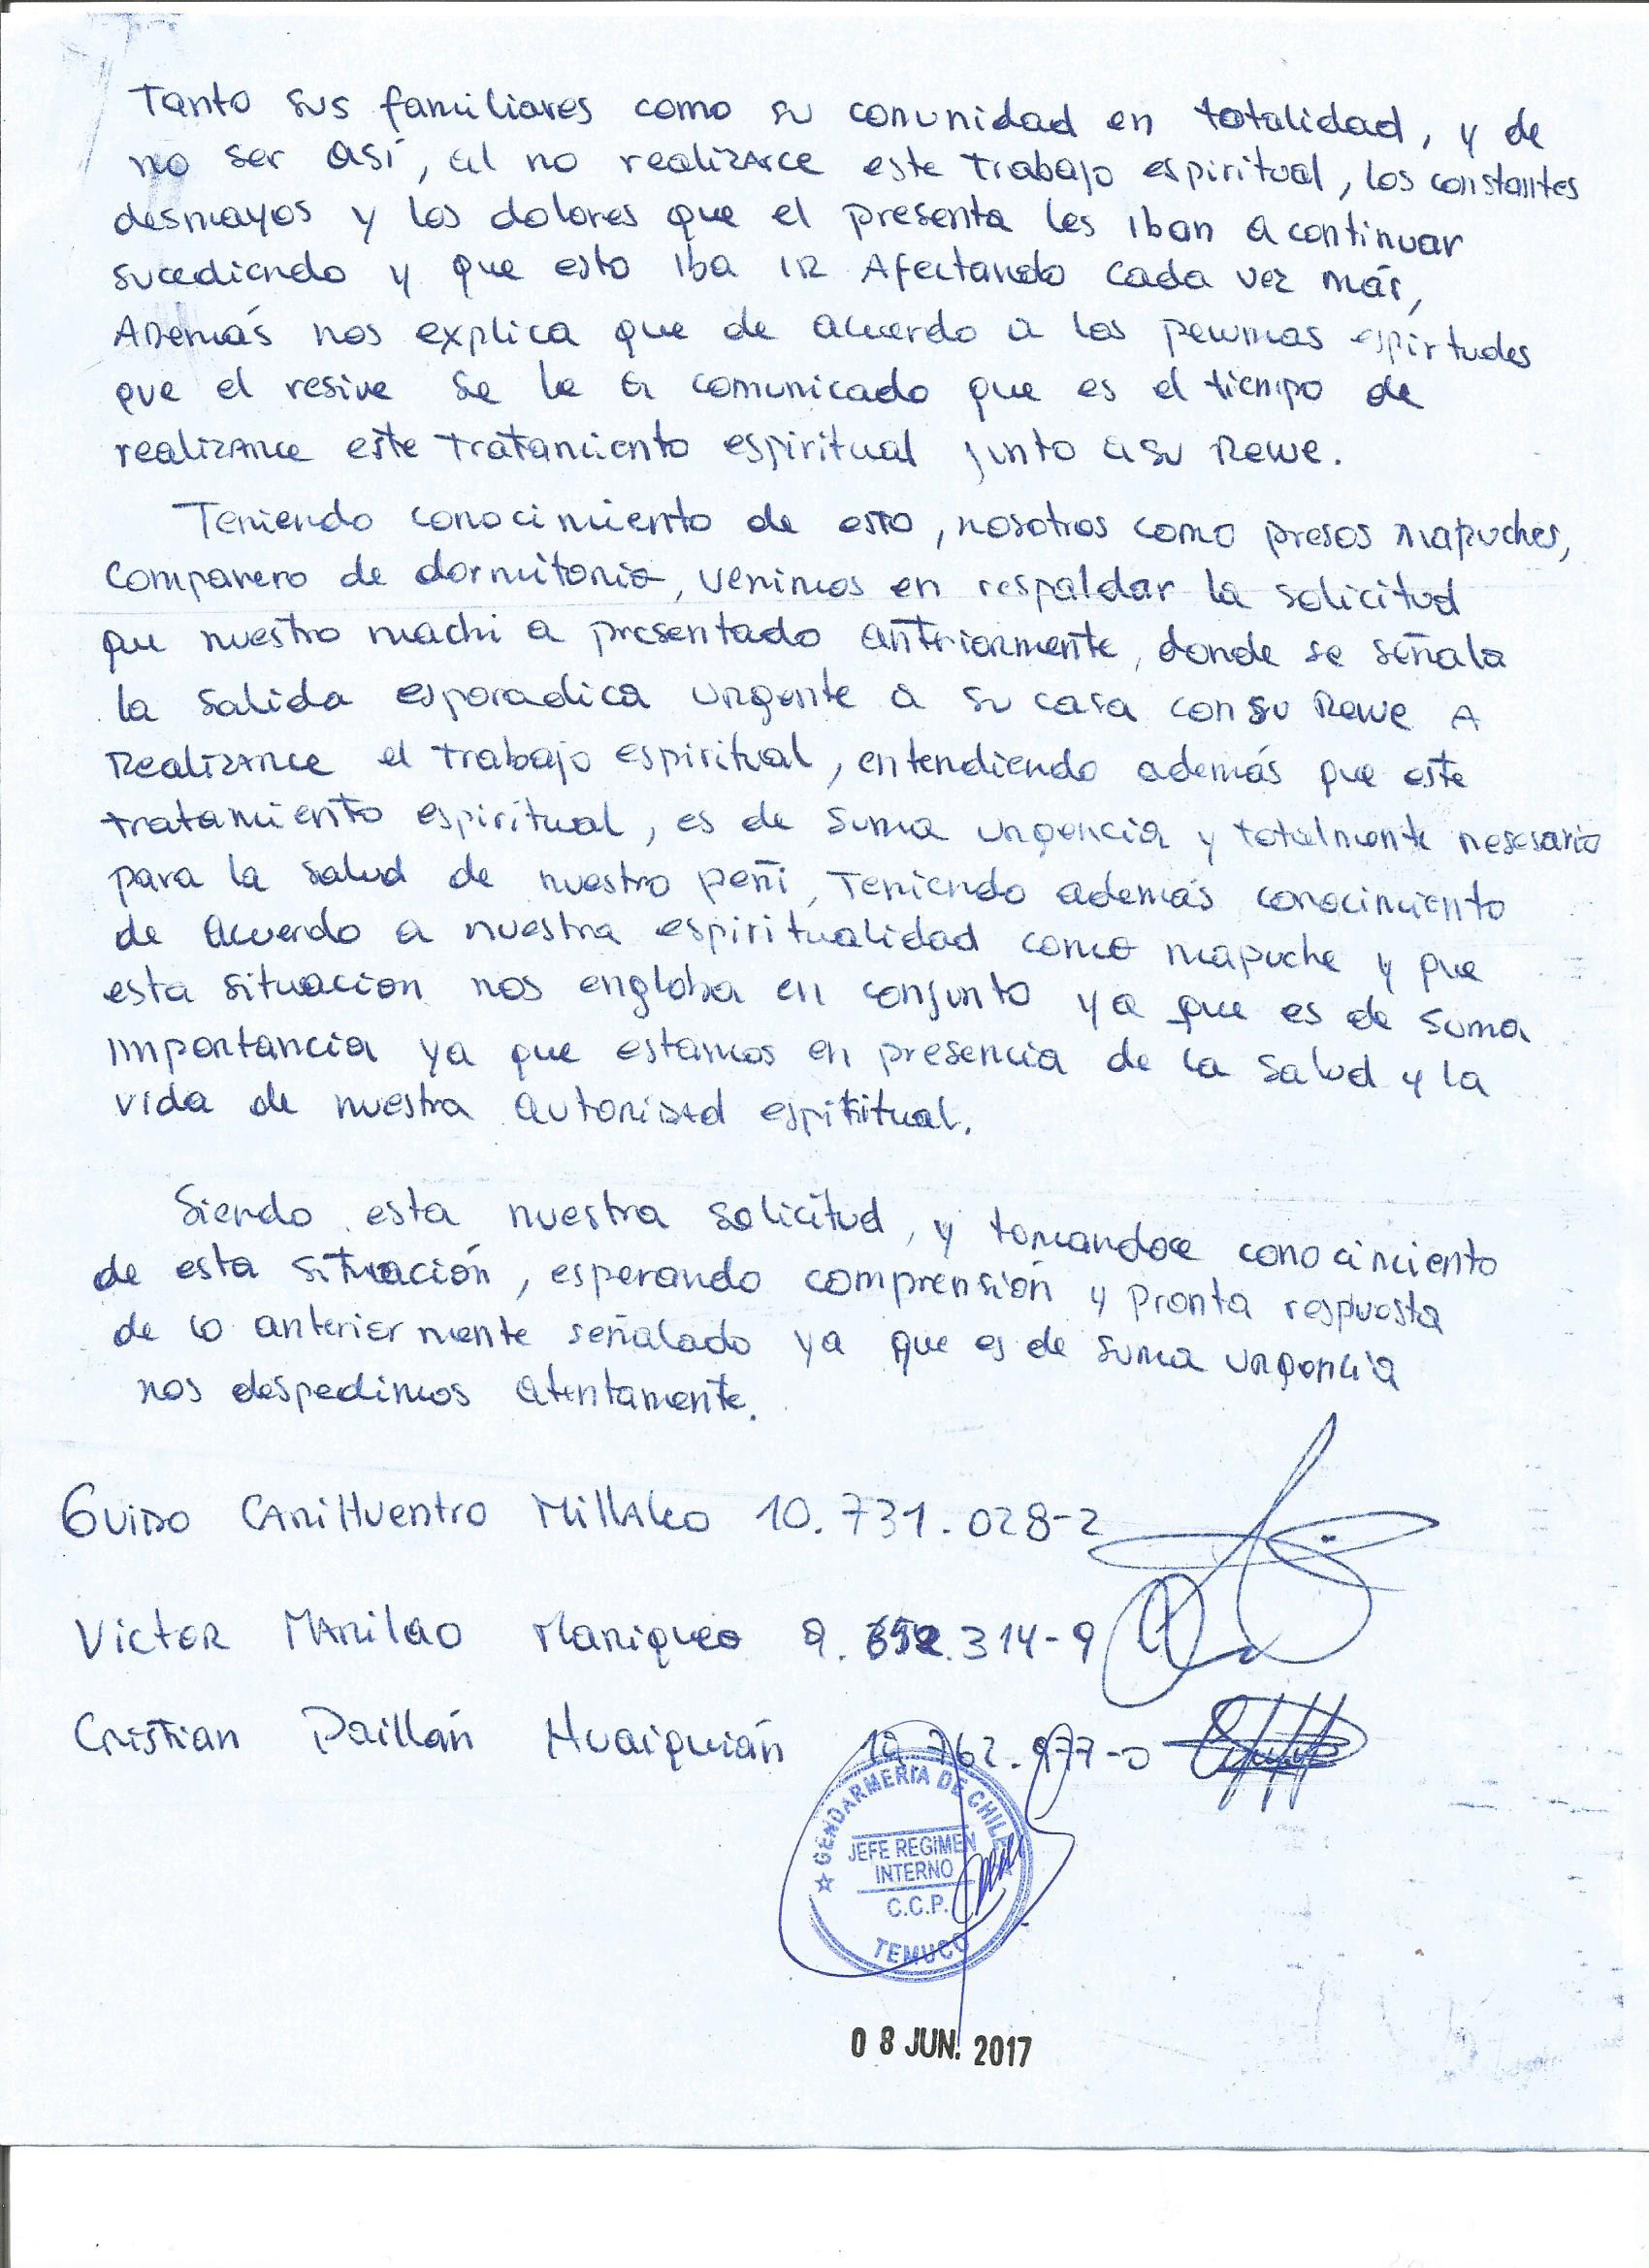 Tanto sus familiares como su comunidad en totalidad, y de
no ser así, al no realizarce este trabajo espiritual, los constantes
desmayos y los dolores que el presenta les iban a continuar
sucediendo y que esto iba ir Afectando cada vez más,
Además nos explica que de acuerdo a los pewmas espirtudes
que el resive se le a comunicado que es el tiempo de
realizarce este tratamiento espiritual junto a su Rewe.
Teniendo conocimiento de esto, nosotros como presos mapuches,
Compañero de dormitorio, venimos en respaldar la solicitud
que nuestro machi a presentado anteriormente, donde se señala
la salida esporadica urgente a su casa con su Rewe A
Realizarce el trabajo espiritual, entendiendo además que este
tratamiento espiritual, es de suma urgencia y totalmente nesesario
para la salud de nuestro peñi, Teniendo además conocimiento
de Acuerdo a nuestra espiritualidad como mapuche y que
esta situacion nos engloba en conjunto ya que es de suma
importancia ya que estamos en presencia de la salud y la
vida de nuestra autoridad espiritual.
Siendo esta nuestra solicitud, y tomandoce conocimiento
de esta situación, esperando comprensión y pronta respuesta
de lo anteriormente señalado ya que es de suma urgencia
nos despedimos atentamente.
Guido Canihuentro Millaleo 10.731.028-2
Victor Manilao Mariqueo 9.692.314-9
Cristian Paillán Huaiquián .762.977-0
GENDARMERIA DE CHILE
JEFE REGIMEN
INTERNO
C.C.P.
TEMUCO
08 JUN. 2017